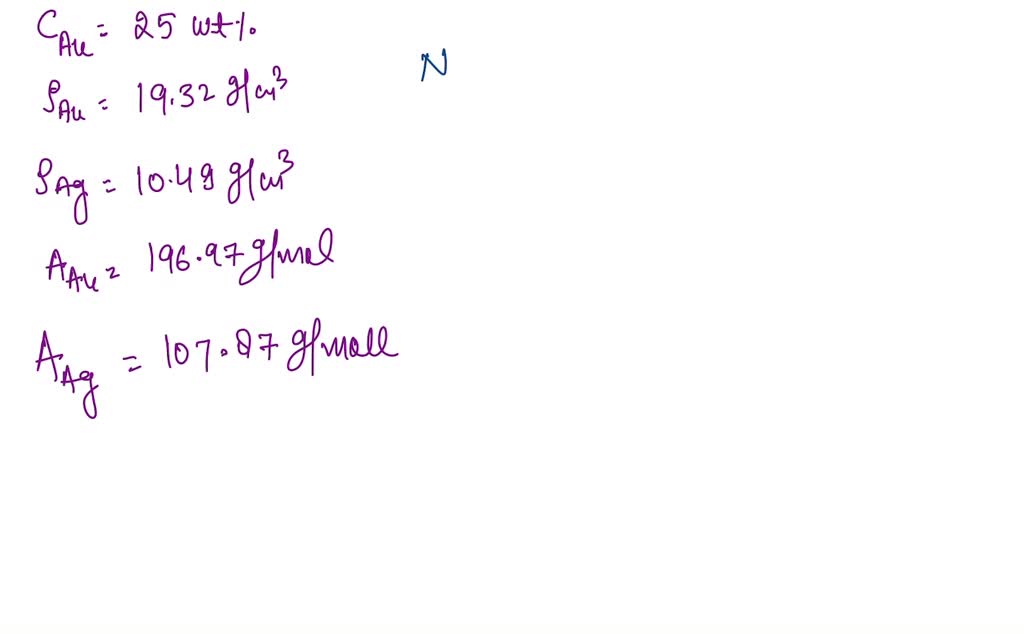 C_Au = 25 wt%
N
ρ_Au = 19.32 g/cm³
ρ_Ag = 10.49 g/cm³
A_Au = 196.97 g/mol
A_Ag = 107.87 g/moll